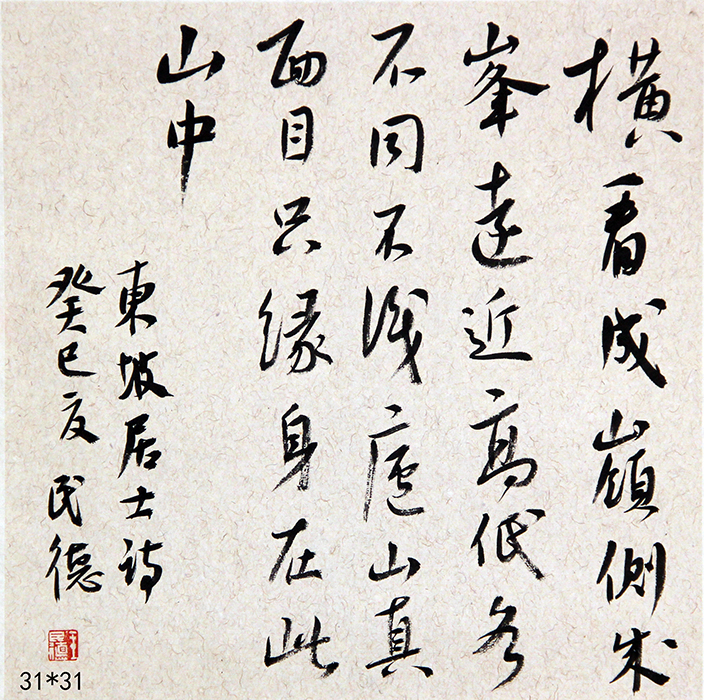 橫看成嶺側成
峯遠近高低各
不同不識廬山真
面目只緣身在此
山中
東坡居士詩
癸巳夏 民德
王民德
31*31